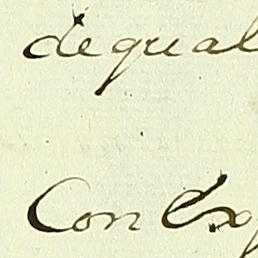 de qual
Con Ex